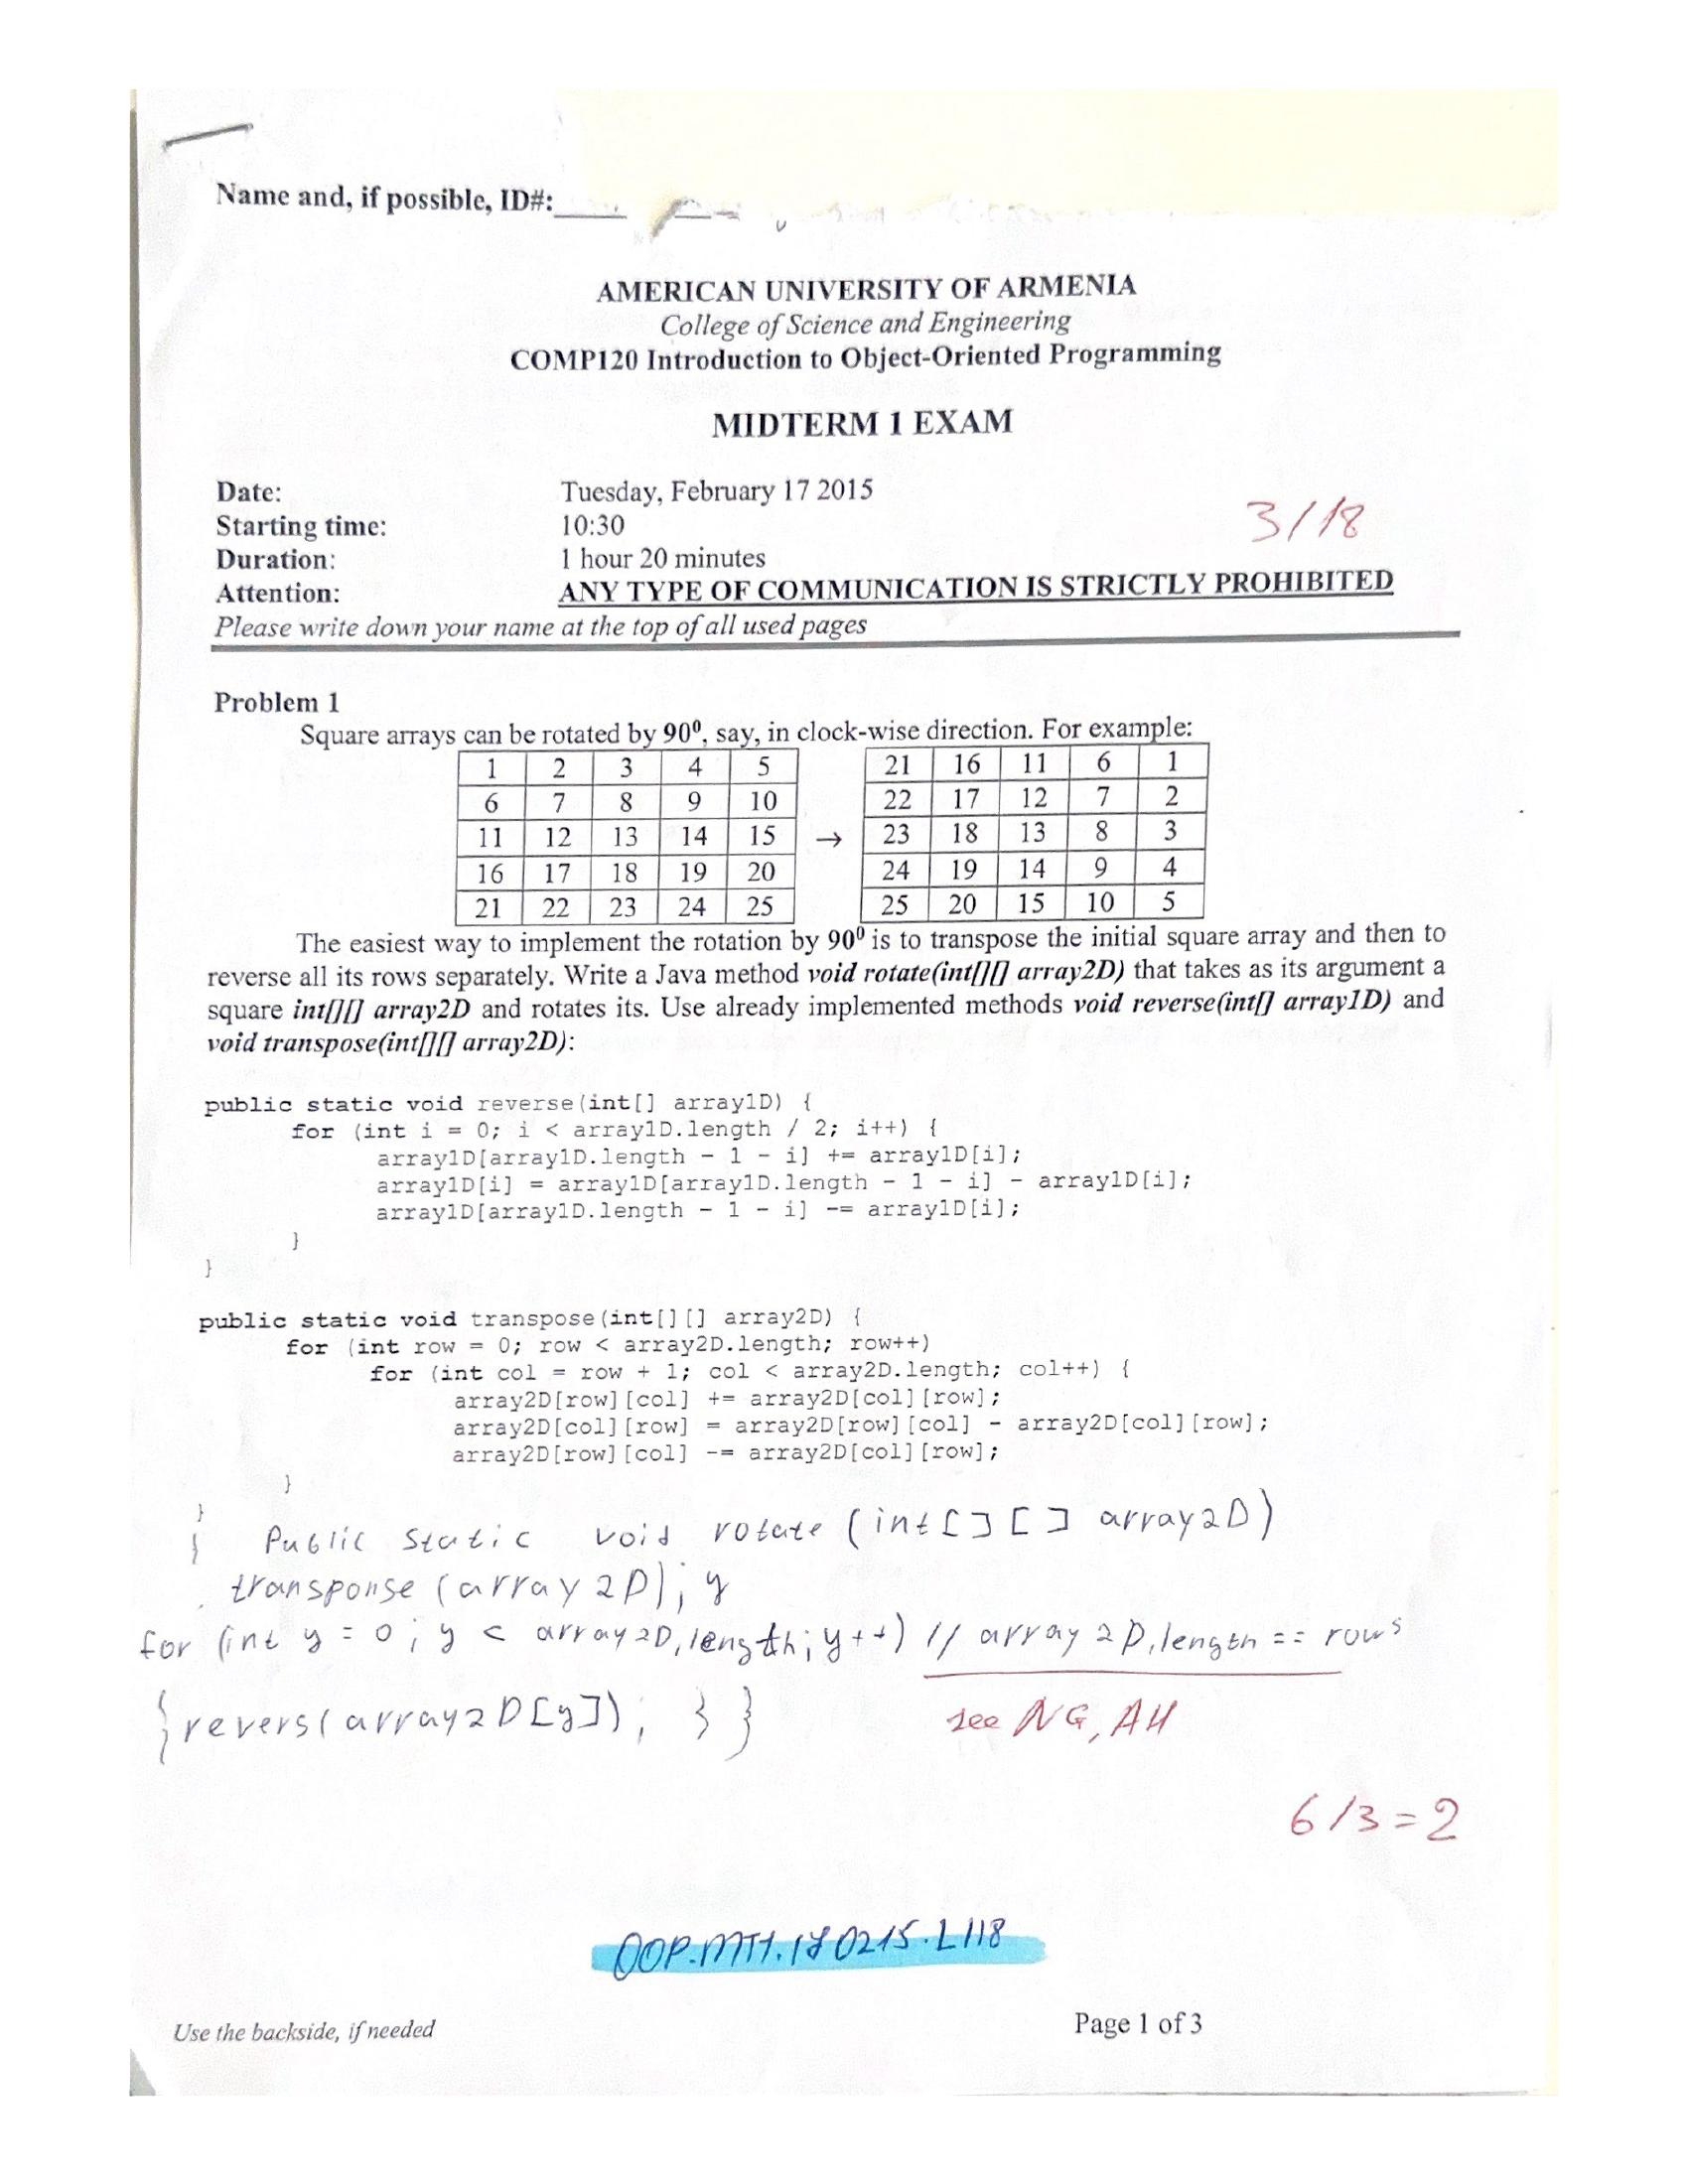 Name and, if possible, ID#:
AMERICAN UNIVERSITY OF ARMENIA
College of Science and Engineering
COMP120 Introduction to Object-Oriented Programming
MIDTERM 1 EXAM
Date: Tuesday, February 17 2015
Starting time: 10:30
3/18
Duration: 1 hour 20 minutes
Attention: ANY TYPE OF COMMUNICATION IS STRICTLY PROHIBITED
Please write down your name at the top of all used pages
Problem 1
Square arrays can be rotated by 90⁰, say, in clock-wise direction. For example:
1 2 3 4 5 21 16 11 6 1
6 7 8 9 10 22 17 12 7 2
11 12 13 14 15 → 23 18 13 8 3
16 17 18 19 20 24 19 14 9 4
21 22 23 24 25 25 20 15 10 5
The easiest way to implement the rotation by 90⁰ is to transpose the initial square array and then to
reverse all its rows separately. Write a Java method void rotate(int[][] array2D) that takes as its argument a
square int[][] array2D and rotates its. Use already implemented methods void reverse(int[] array1D) and
void transpose(int[][] array2D):
public static void reverse(int[] array1D) {
for (int i = 0; i < array1D.length / 2; i++) {
array1D[array1D.length - 1 - i] += array1D[i];
array1D[i] = array1D[array1D.length - 1 - i] - array1D[i];
array1D[array1D.length - 1 - i] -= array1D[i];
}
}
public static void transpose(int[][] array2D) {
for (int row = 0; row < array2D.length; row++)
for (int col = row + 1; col < array2D.length; col++) {
array2D[row][col] += array2D[col][row];
array2D[col][row] = array2D[row][col] - array2D[col][row];
array2D[row][col] -= array2D[col][row];
}
}
{ Public static void rotate (int[][] array2D)
transponse (array2D); y
for (int y = 0; y < array2D.length; y++) // array2D.length == rows
{revers(array2D[y]); } }
see NG, AH
6/3=2
OOP.MT1.170215.L118
Use the backside, if needed
Page 1 of 3